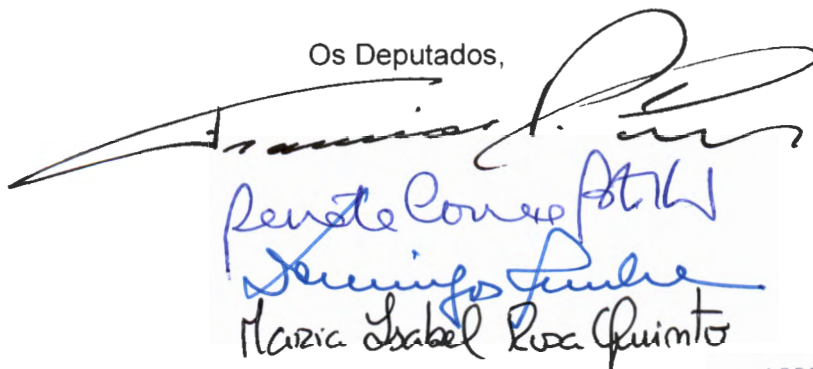 Os Deputados,
Francisco
Renata Correia Botelho
Domingos Cunha
Maria Isabel Rosa Quinto